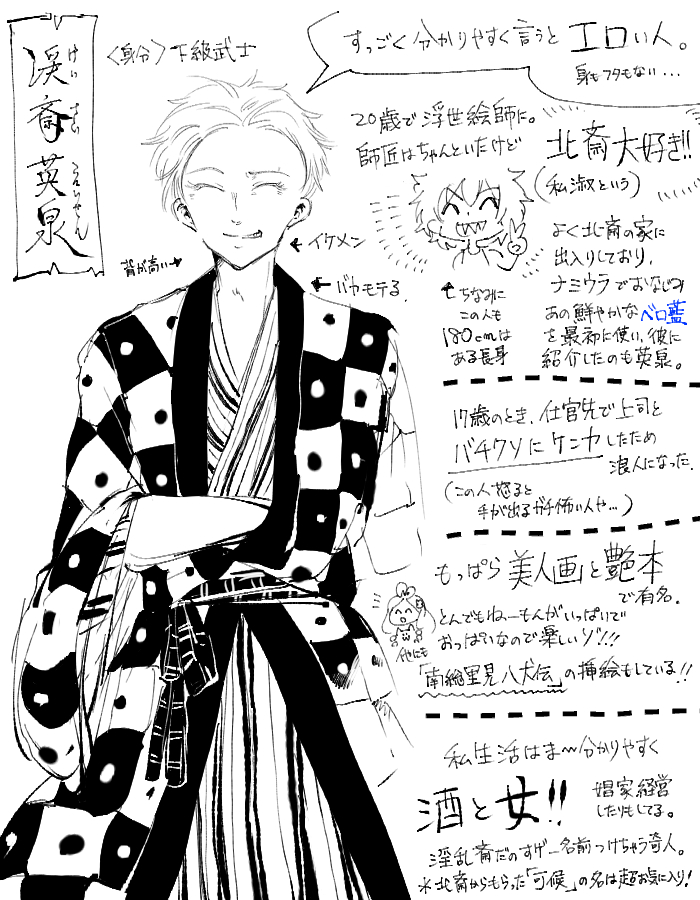 渓斎英泉
けい さい えいせん
〈身分〉下級武士
すっごく分かりやすく言うとエロい人。
身もフタもない…
20歳で浮世絵師に。
師匠はちゃんといたけど
北斎大好き!!
(私淑という)
よく北斎の家に
出入りしており、
ナミウラでおなじみ
あの鮮やかなベロ藍
を最初に使い、彼に
紹介したのも英泉。
ちなみに
この人も
180cmは
ある長身
イケメン
背が高い
バカモテる
17歳のとき、仕官先で上司と
バチクソにケンカしたため
浪人になった。
(この人怒ると
手が出るガチ怖い人や…)
もっぱら美人画と艶本
で有名。
とんでもねーもんがいっぱいで
おっぱいなので楽しいゾ!!!
他にも
「南総里見八犬伝」の挿絵もしている!!
私生活はま〜分かりやすく
酒と女!!
娼家経営
したりもしてる。
淫乱斎だのすげー名前つけちゃう奇人。
※北斎からもらった「可候」の名は超お気に入り!